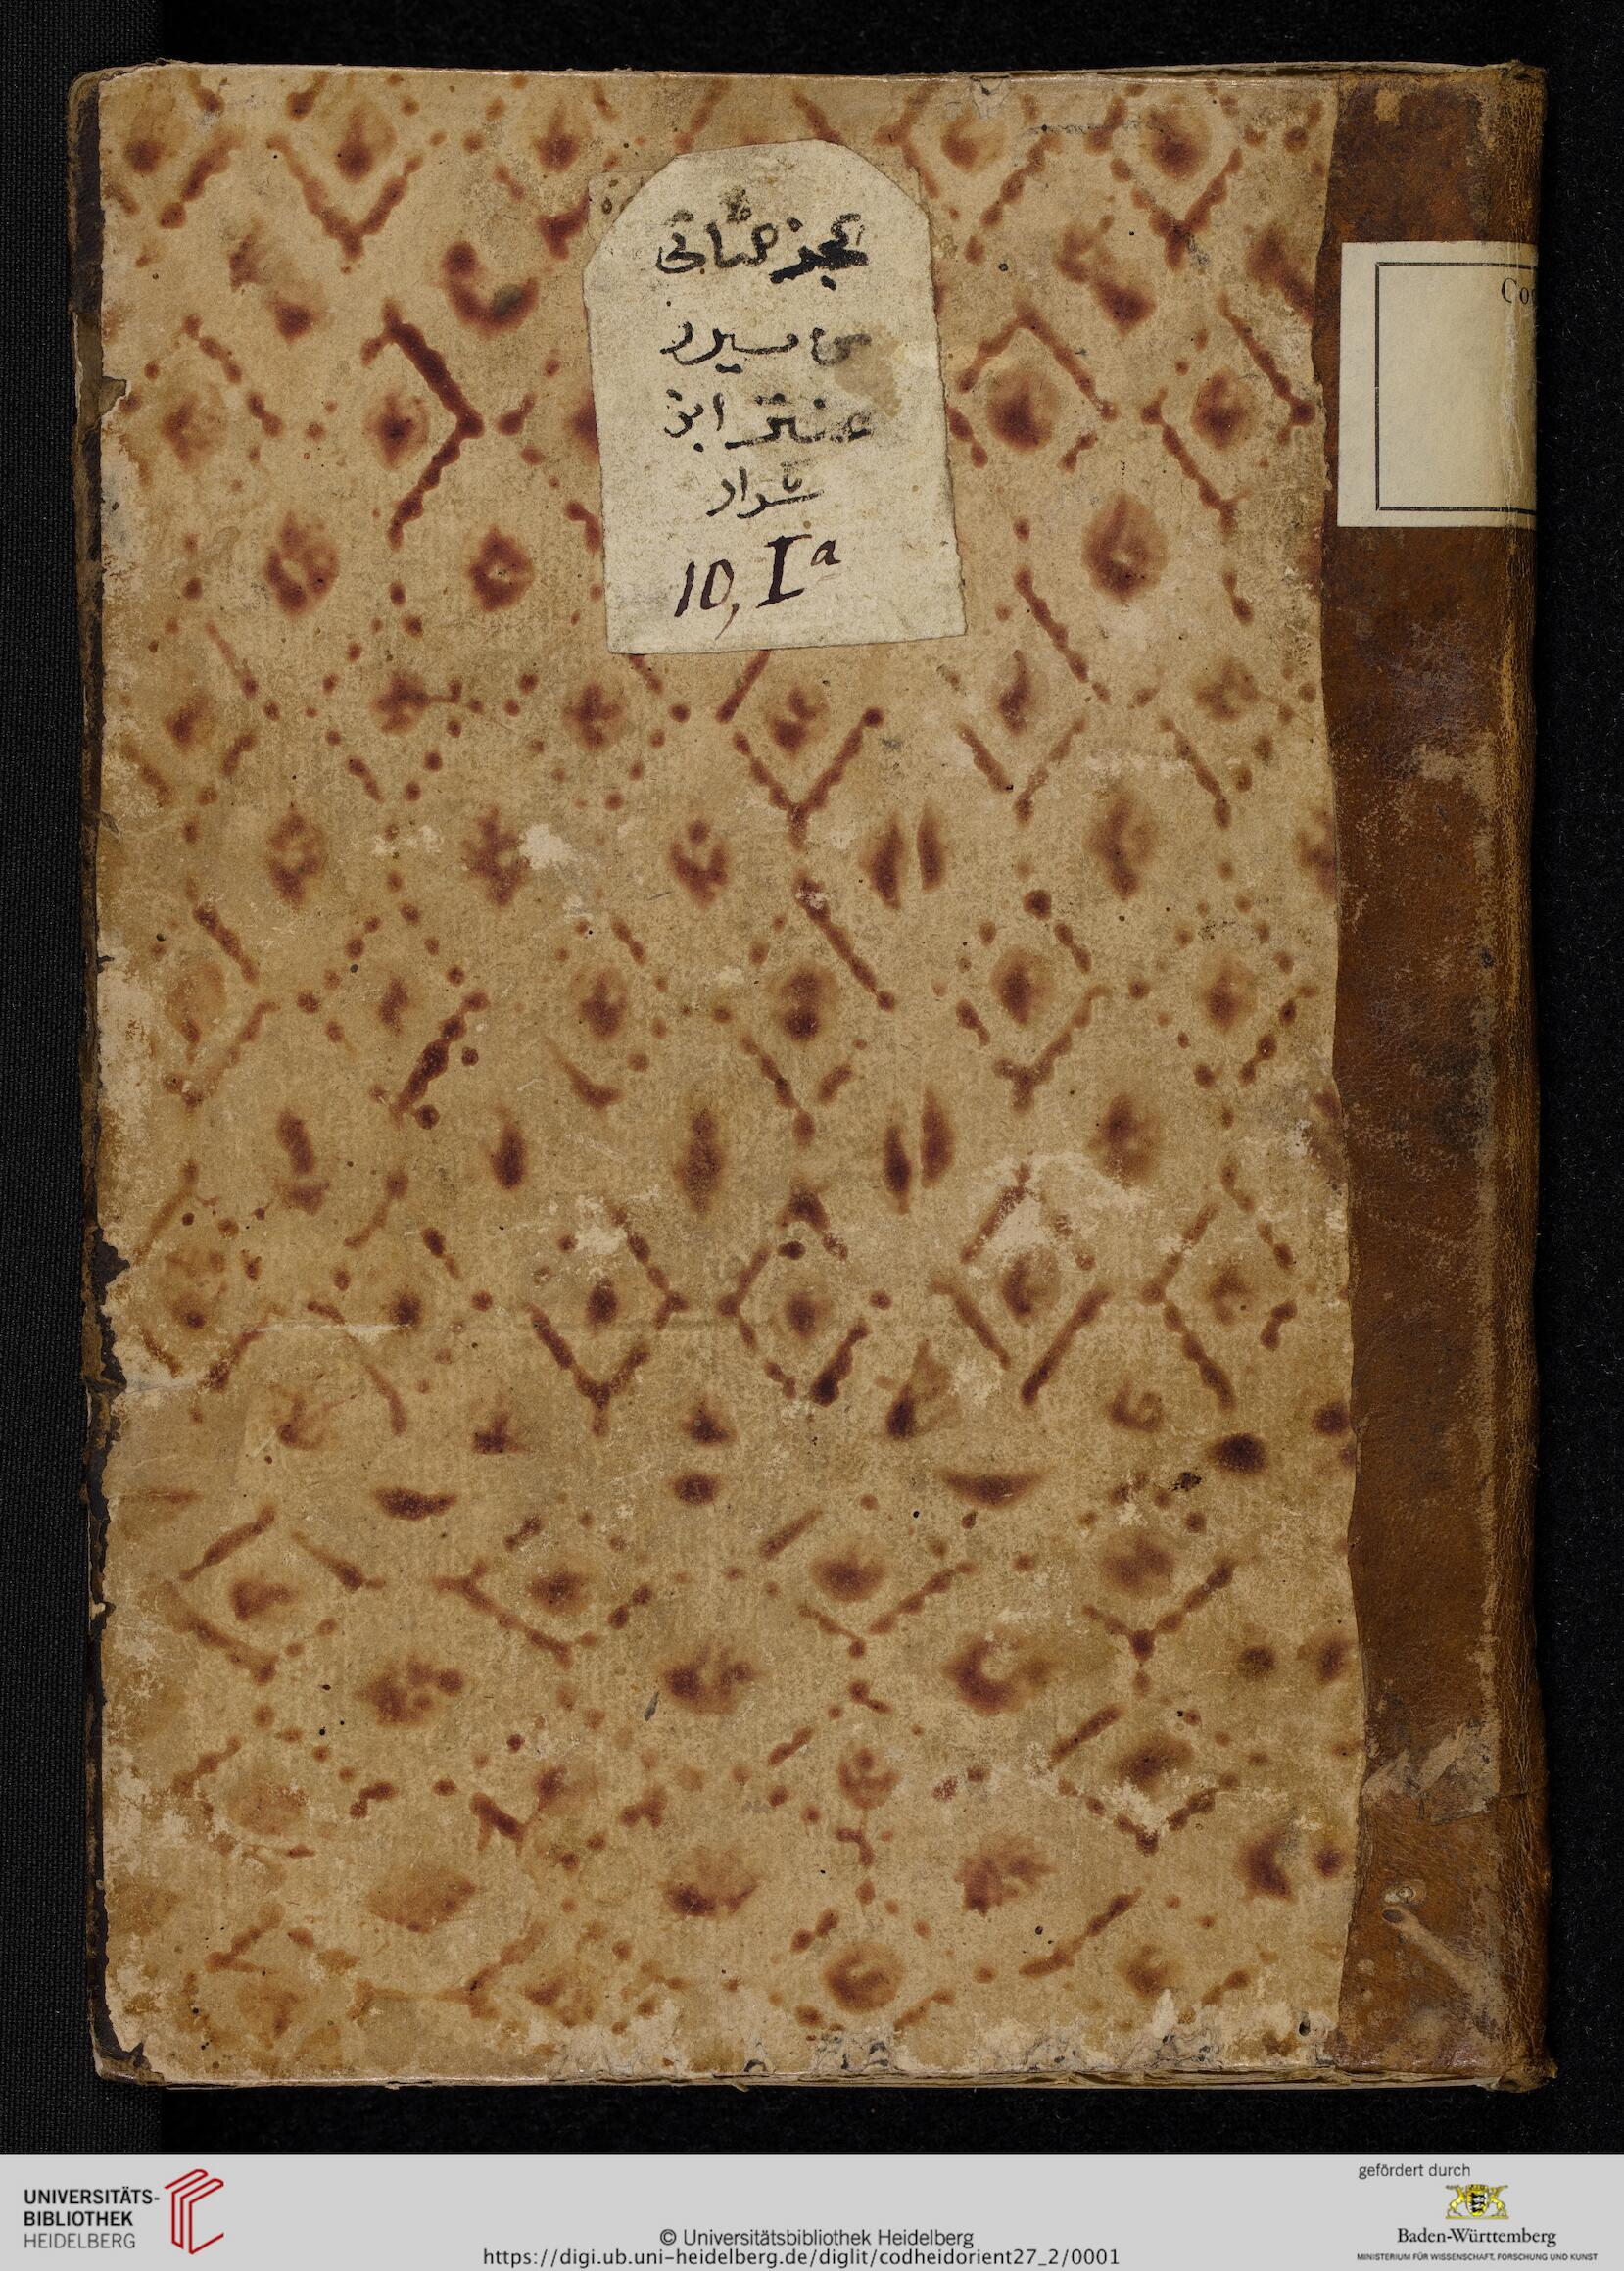 الجز الثاني
من سيرت
عنتر ابن
شداد
10, Iª
Co
UNIVERSITÄTS-
BIBLIOTHEK
HEIDELBERG
© Universitätsbibliothek Heidelberg
https://digi.ub.uni-heidelberg.de/diglit/codheidorient27_2/0001
gefördert durch
Baden-Württemberg
MINISTERIUM FÜR WISSENSCHAFT, FORSCHUNG UND KUNST